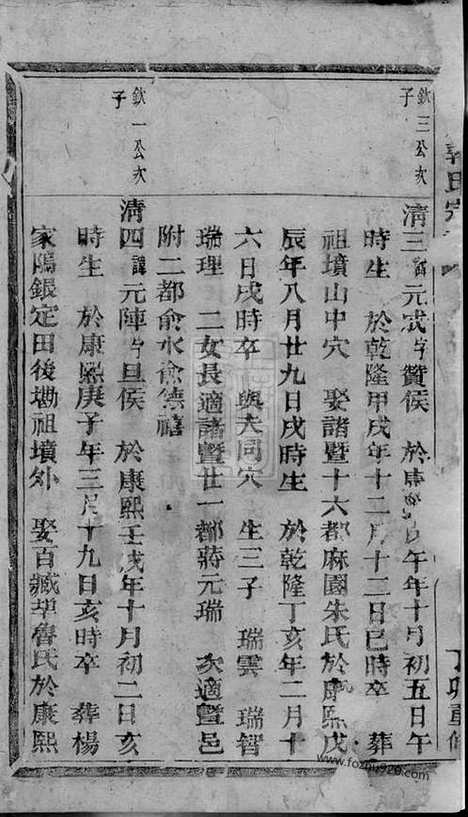 氏宗
丁卯重修
欽三公次子
清三諱元宓字贊侯 於康 午年十月初五日午
時生 於乾隆甲戌年十二月十二日巳時卒 葬
祖墳山中穴 娶諸暨十六都麻園朱氏於康熙戊
辰年八月廿九日戌時生 於乾隆丁亥年二月十
六日戌時卒 與夫同穴 生三子 瑞雲 瑞智
瑞理 二女長適諸暨廿一都蔣元瑞 次適暨邑
附二都俞水俞德禧
欽一公次子
清四諱元陣字旦侯 於康熙壬戌年十月初二日亥
時生 於康熙庚子年三月十九日亥時卒 葬楊
家隖銀定田後磡祖墳外 娶百藏埠魯氏於康熙
www.fozhu920.com